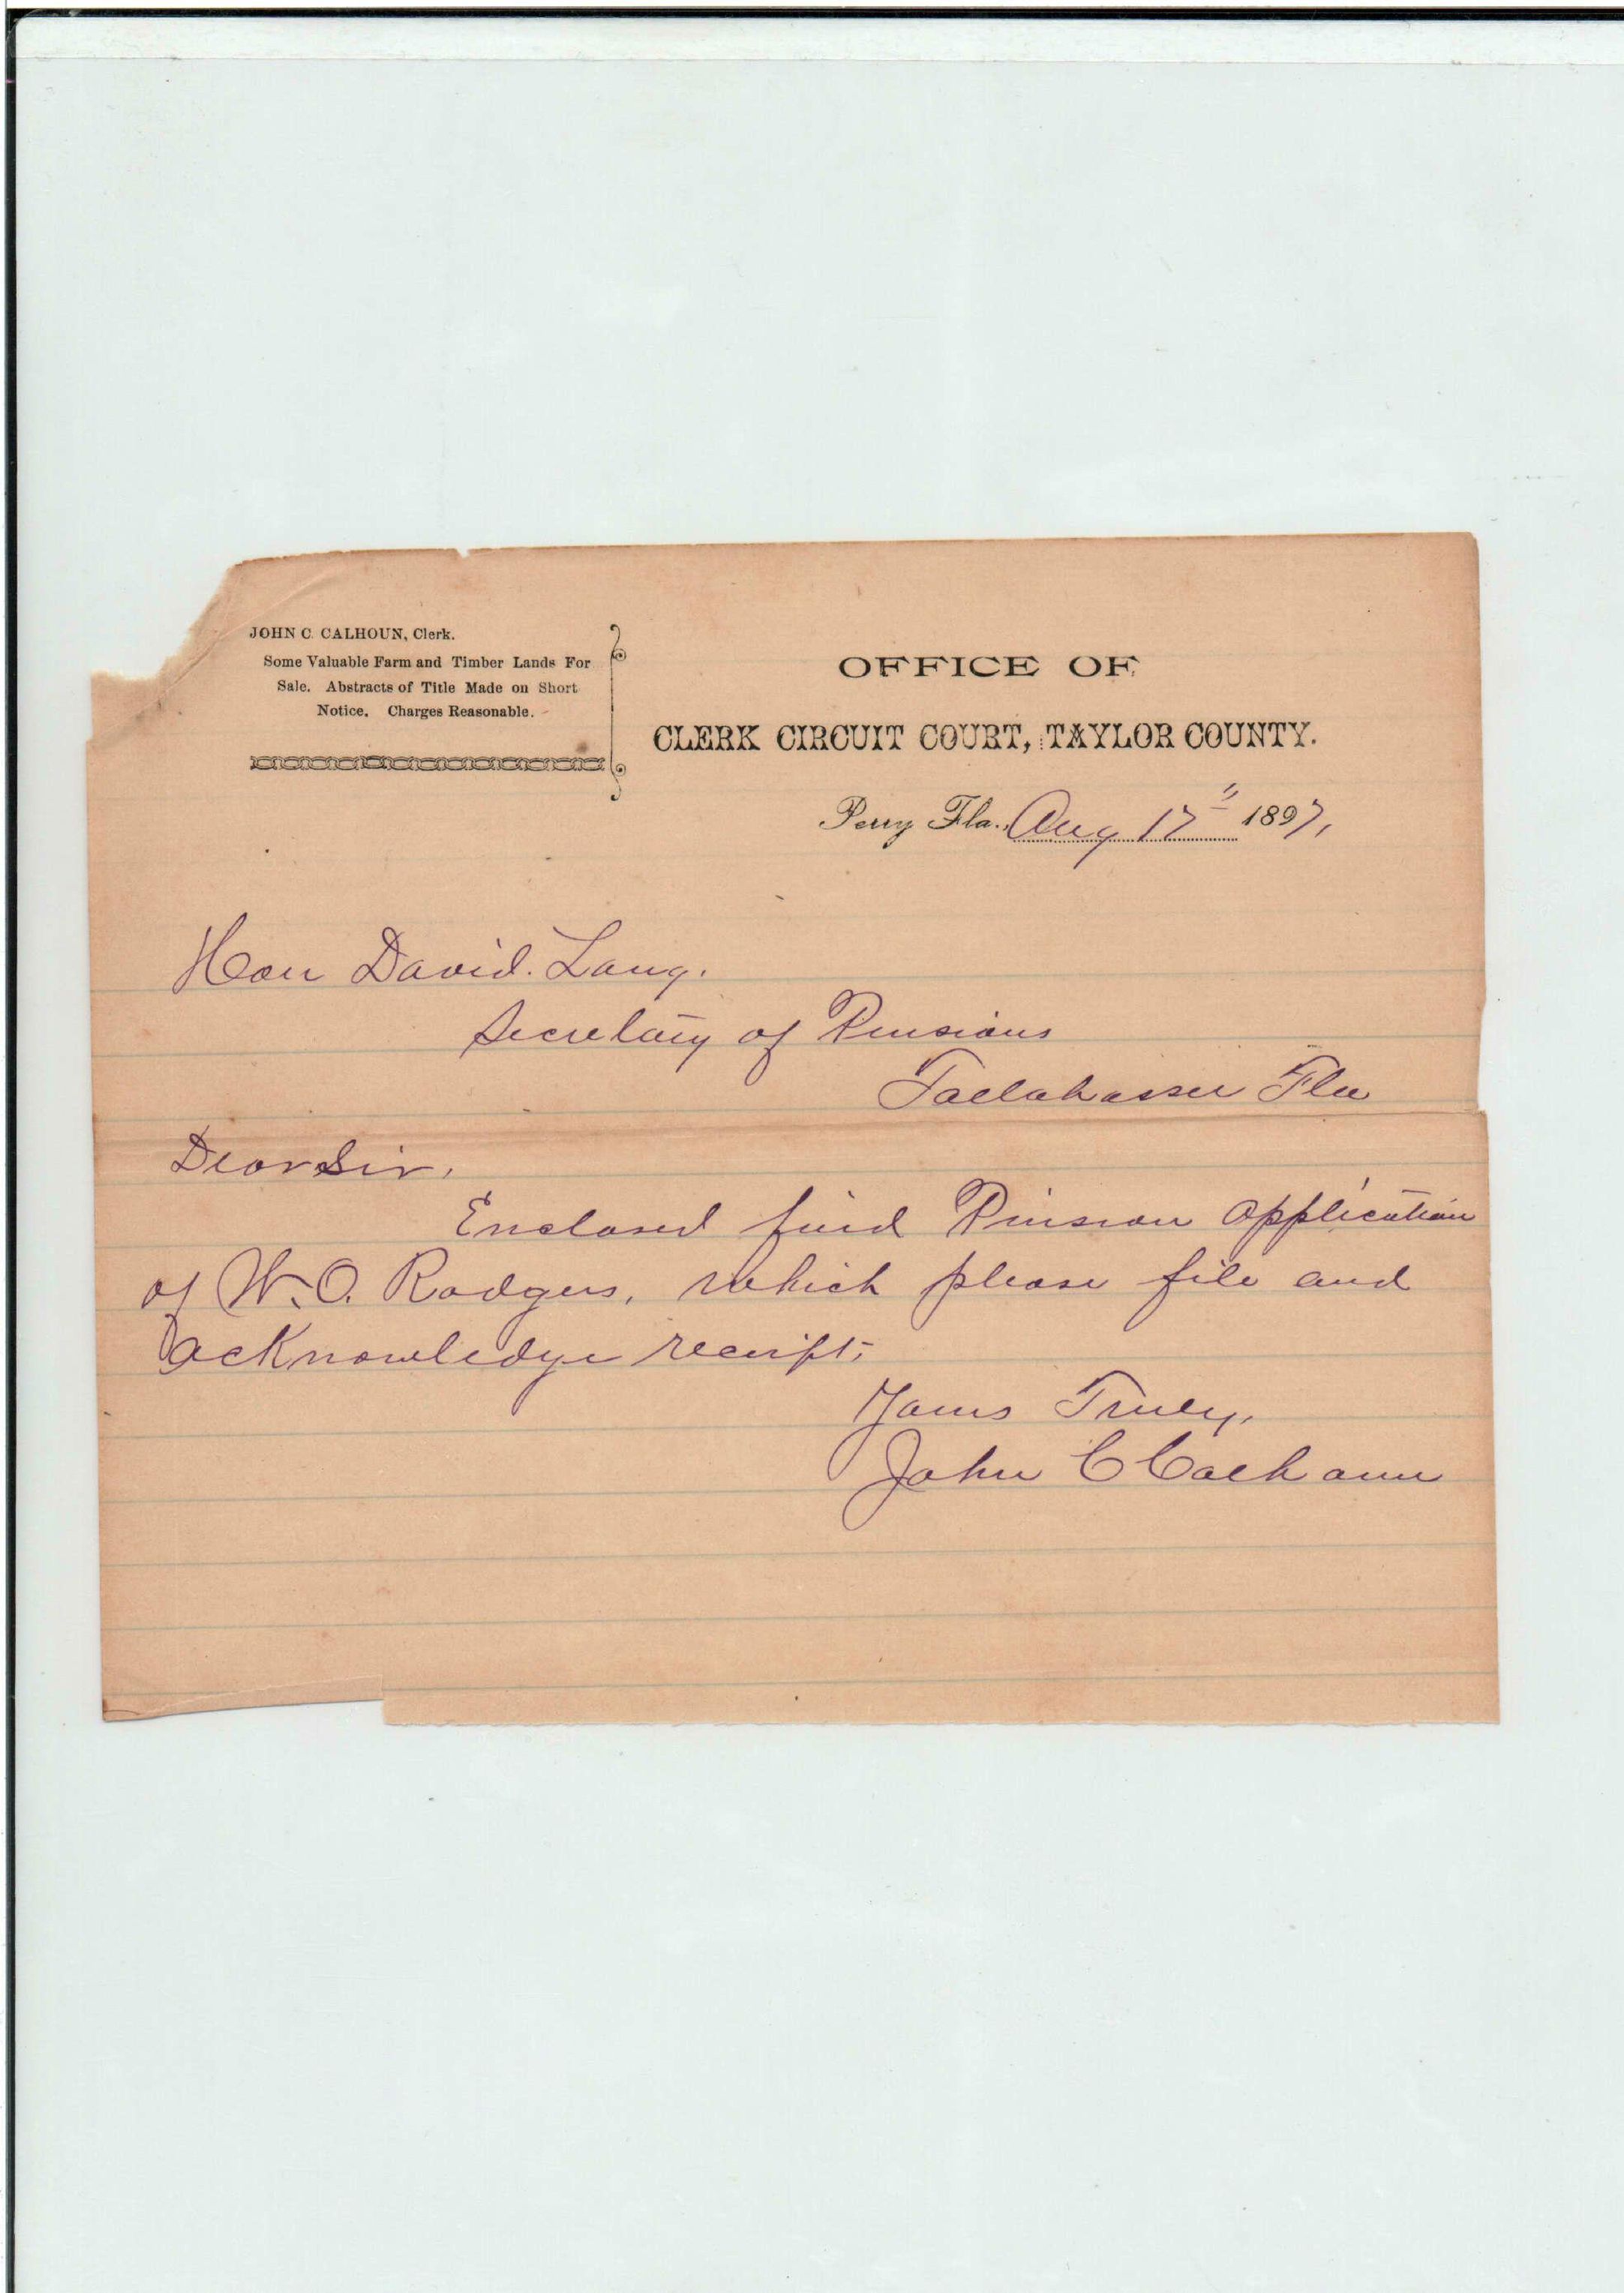 JOHN C. CALHOUN, Clerk.
Some Valuable Farm and Timber Lands For
Sale. Abstracts of Title Made on Short
Notice. Charges Reasonable.
OFFICE OF
CLERK CIRCUIT COURT, TAYLOR COUNTY.
Perry Fla., Aug 17" 1897,
Hon David. Lang.
Secretary of Pensions
Tallahassee Fla
Dear Sir,
Enclosed find Pension application
of W. O. Rodgers, which please file and
acknowledge receipt;
Yours Truly,
John C Calhoun